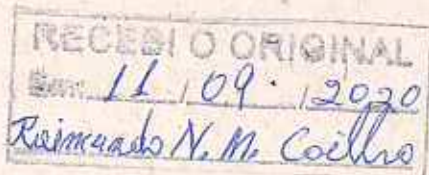 RECEBI O ORIGINAL
Em: 11 / 09 . / 2020
Raimundo N. M. Coelho